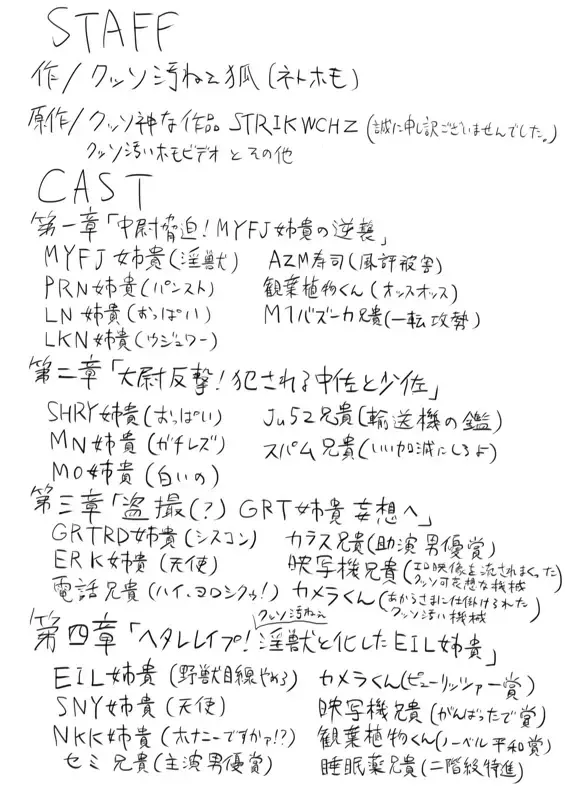 STAFF
作/クッソ汚ねえ狐(ネトホモ)
原作/クッソ神な作品 STRIKWCHZ(誠に申し訳ございませんでした。)
クッソ汚いホモビデオ とその他
CAST
第一章「中尉脅迫!MYFJ姉貴の逆襲」
MYFJ 姉貴(淫獣) AZM寿司(風評被害)
PRN姉貴(パンスト) 観葉植物くん(オッスオッス)
LN 姉貴(おっぱい) M1バズーカ兄貴(一転攻勢)
LKN姉貴(ウジュワー)
第二章「大尉反撃!犯される中佐と少佐」
SHRY姉貴(おっぱい) Ju52兄貴(輸送機の鑑)
MN姉貴(ガチレズ) スパム兄貴(いい加減にしろよ)
MO姉貴(白いの)
第三章「盗撮(?)GRT姉貴 妄想へ」
GRTRD姉貴(シスコン) カラス兄貴(助演男優賞)
ERK姉貴(天使) 映写機兄貴(エロ映像を流されまくったクッソ可哀想な機械)
電話兄貴(ハイ、ヨロシクゥ!) カメラくん(あからさまに仕掛けられたクッソ汚い機械)
クッソ汚ねえ
第四章「ヘタレレイプ!淫獣と化したEIL姉貴」
EIL姉貴(野獣目線やめろ) カメラくん(ピューリッツァー賞)
SNY姉貴(天使) 映写機兄貴(がんばったで賞)
NKK姉貴(オナニーですかァ!?) 観葉植物くん(ノーベル平和賞)
セミ兄貴(主演男優賞) 睡眠薬兄貴(二階級特進)